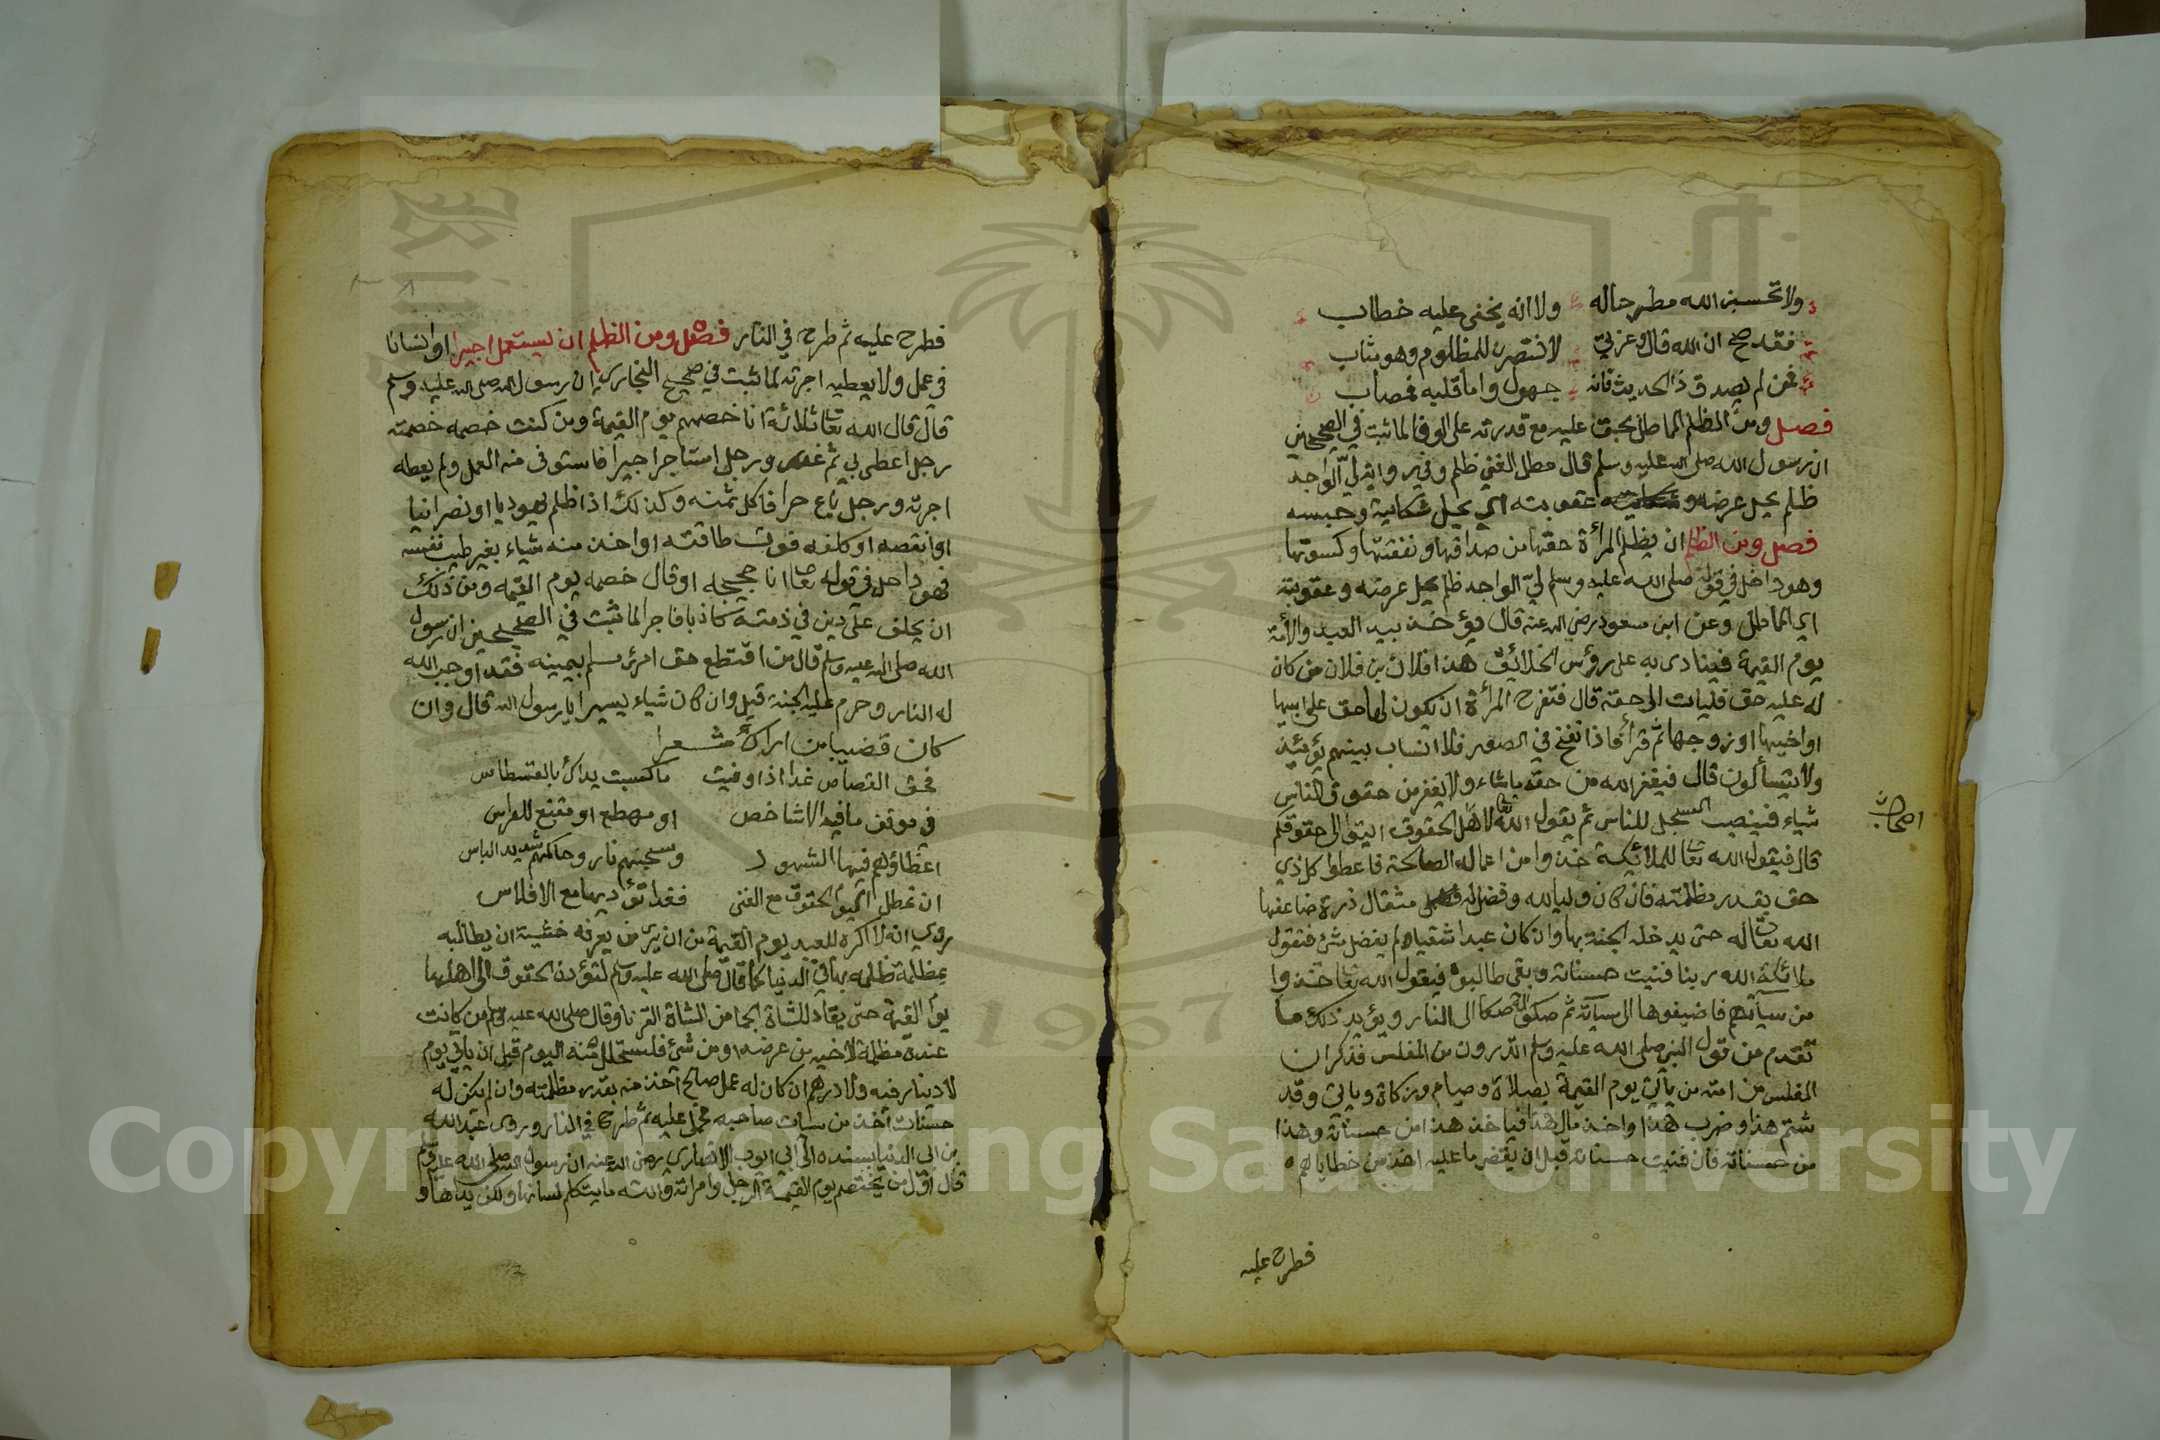 ولا تحسبن الله مطرحا له ولا انه يخفى عليه خطاب
فقد صح ان الله قال وعزتي لانتصرن للمظلوم وهو مثاب
فمن لم يصدق ذا الحديث فانه جهول واما قلبه فمصاب
فصل ومن الظلم المماطل بحق عليه مع قدرته على الوفا لما ثبت في الصحيحين
ان رسول الله صلى الله عليه وسلم قال مطل الغني ظلم وفي رواية ليّ الواجد
ظلم يحل عرضه وعقوبته اي يحل شكايته وحبسه
فصل ومن الظلم ان يظلم المرأة حقها من صداقها ونفقتها وكسوتها
وهو داخل في قوله صلى الله عليه وسلم ليّ الواجد ظلم يحل عرضه وعقوبته
اي المماطل وعن ابن مسعود رضي الله عنه قال يؤخذ بيد العبد والأمة
يوم القيمة فينادى به على رؤس الخلائق هذا فلان بن فلان من كان
له عليه حق فليات الى حقه قال فتفرح المرأة ان يكون لها حق على ابيها
او اخيها او زوجها ثم قرأ فاذا نفخ في الصور فلا انساب بينهم يومئذ
ولا يتسألون قال فيغفر الله من حقه ما شاء ولا يغفر من حقوق الناس
شياء فينصب المسجل للناس ثم يقول الله تعا لاهل الحقوق ايتوا الى حقوقكم
اصحاب
قال فيقول الله تعا للملائكة خذوا من اعماله الصالحة فاعطوا كل ذي
حق بقدر مظلمته فان كان وليا لله وفضل له مثقال ذرة ضاعفها
الله تعا له حتى يدخله الجنة بها وان كان عبدا شقيا ولم يفضل شئ فتقول
ملائكة الله ربنا فنيت حسناته وبقى طالبوه فيقول الله تعا خذوا
من سيآتهم فاضيفوها الى سيآته ثم صكوا له صكا الى النار ويؤيد ذلك ما
تقدم من قول النبي صلى الله عليه وسلم اتدرون من المفلس فذكر ان
المفلس من امته من يأتي يوم القيمة بصلاة وصيام وزكاة وياتي وقد
شتم هذا وضرب هذا واخذ مال هذا فياخذ هذا من حسناته وهذا
من حسناته فان فنيت حسناته قبل ان يقضي ما عليه اخذ من خطاياهم
فطرح عليه
فطرح عليه ثم طرح في النار فصل ومن الظلم ان يستعمل اجيرا او انسانا
في عمل ولا يعطيه اجرته لما ثبت في صحيح البخاري ان رسول الله صلى الله عليه وسلم
قال قال الله تعا ثلاثة انا خصمهم يوم القيمة ومن كنت خصمه خصمته
رجل اعطى بي ثم غدر ورجل استاجر اجيرا فاستوفى منه العمل ولم يعطه
اجرته ورجل باع حرا فاكل ثمنه وكذلك اذا ظلم يهوديا او نصرانيا
او انقصه او كلفه فوق طاقته او اخذ منه شياء بغير طيب نفسه
فهو داخل في قوله تعا انا حجيجه او قال خصمه يوم القيمه ومن ذلك
ان يحلف على دين في ذمته كاذبا فاجرا لما ثبت في الصحيحين ان رسول
الله صلى الله عليه وسلم قال من اقتطع حق امرئ مسلم بيمينه فقد اوجب الله
له النار وحرم عليه الجنة قيل وان كان شياء يسيرا يا رسول الله قال وان
كان قضيبا من اراك شعرا
فخف القصاص غدا اذا وفيت ما كسبت يداك بالقسطاس
في موقف ما فيه الا شاخص او مهطع او مقنع للراس
اعضاؤهم فيها الشهود وسجنهم نار وحاكمهم شديد الباس
ان تمطل اليوم الحقوق مع الغنى فغدا تؤديها مع الافلاس
روي انه لا اكره للعبد يوم القيمة من ان يرى من يعرفه خشية ان يطالبه
بمظلمة ظلمه بها في الدنيا كما قال صلى الله عليه وسلم لتؤدن الحقوق الى اهلها
يوم القيمة حتى يقاد للشاة الجما من الشاة القرنا وقال صلى الله عليه وسلم من كانت
عنده مظلمة لاخيه من عرضه او من شئ فليستحلل منه اليوم قبل ان ياتي يوم
لا دينار فيه ولا درهم ان كان له عمل صالح اخذ منه بقدر مظلمته وان لم يكن له
حسنات اخذ من سيات صاحبه فحمل عليه ثم طرح في النار وروى عبد الله
بن ابي الدنيا بسنده الى ابي ايوب الانصاري رضي الله عنه ان رسول الله صلى الله عليه وسلم
قال اول من يختصم يوم القيمة الرجل وامراته والله ما يتكلم لسانها ولكن يداها و
Copyright © King Saud University
1957